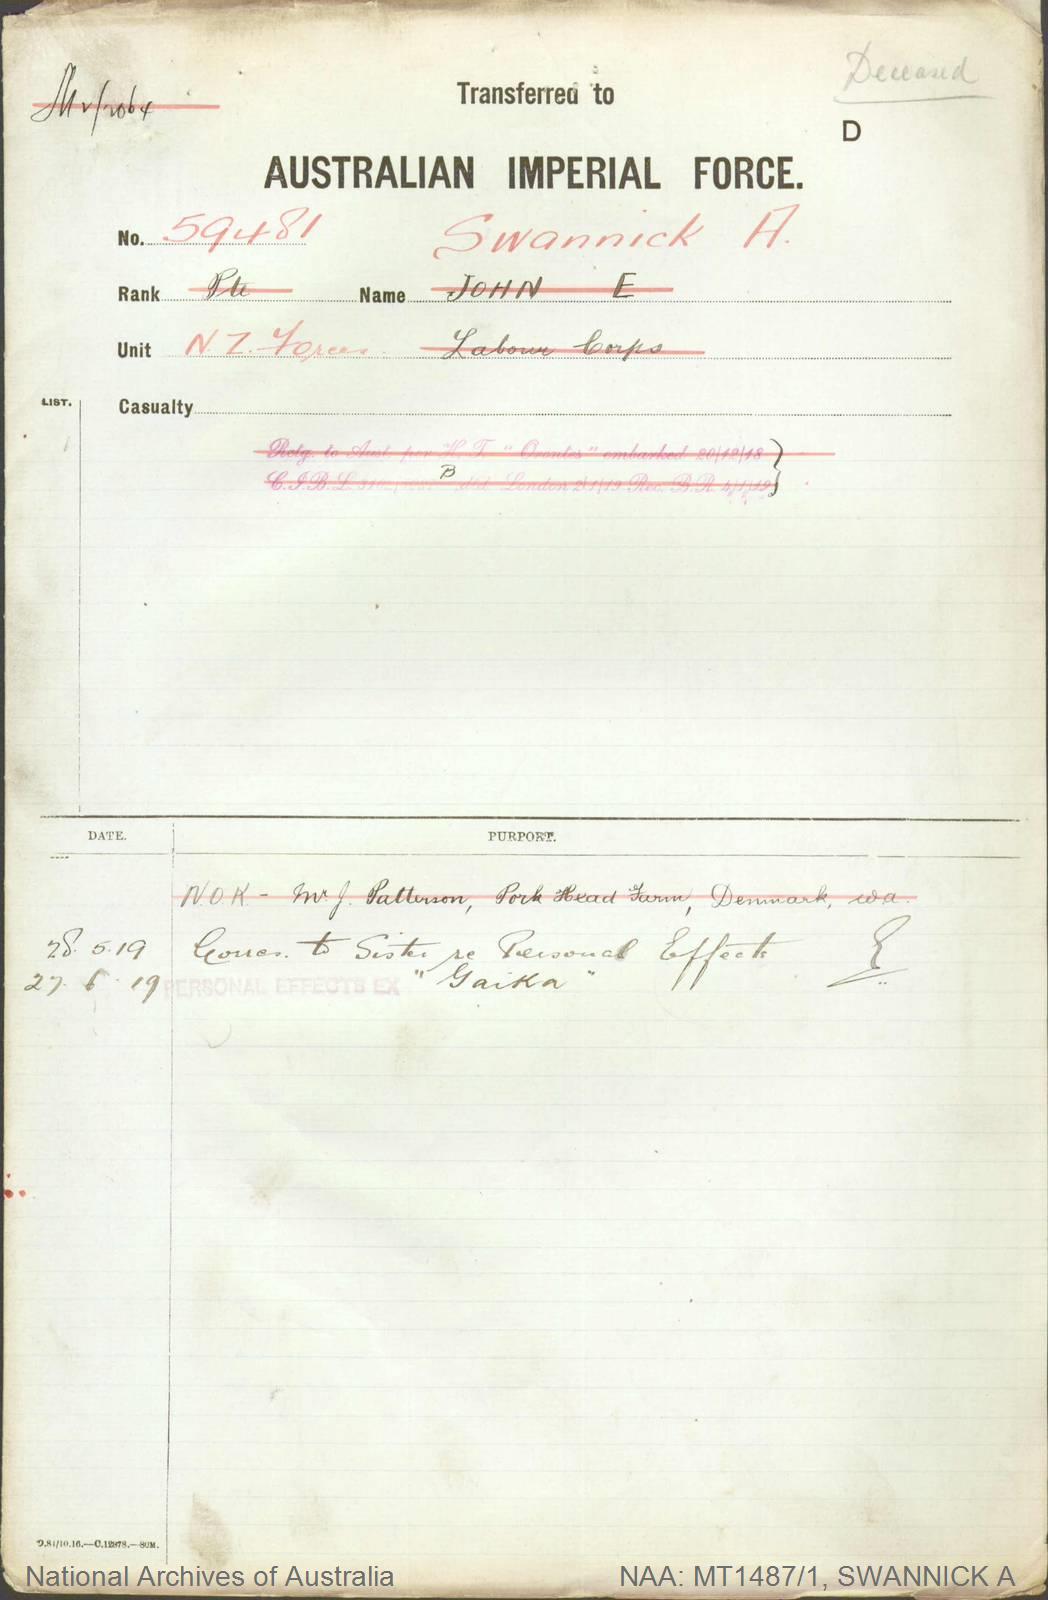 Deceased
Transferred to
D
AUSTRALIAN IMPERIAL FORCE.
No. 59481 Swannick A.
Rank Pte Name JOHN E
Unit N.Z. Forces Labour Corps
LIST.
Casualty
Retg. to Aust per H.T. "Orontes" embarked 20/12/18
C.I.B.L. B London 2/1/19 Rec. B.R.
DATE. PURPORT.
N.O.K - Mr J. Patterson, Pork Head Farm, Denmark, wa.
28.5.19 Corres. to Sister re Personal Effects
27 6 19 PERSONAL EFFECTS EX "Gaika"
D.81/10.16.—C.12878.—80M.
National Archives of Australia NAA: MT1487/1, SWANNICK A